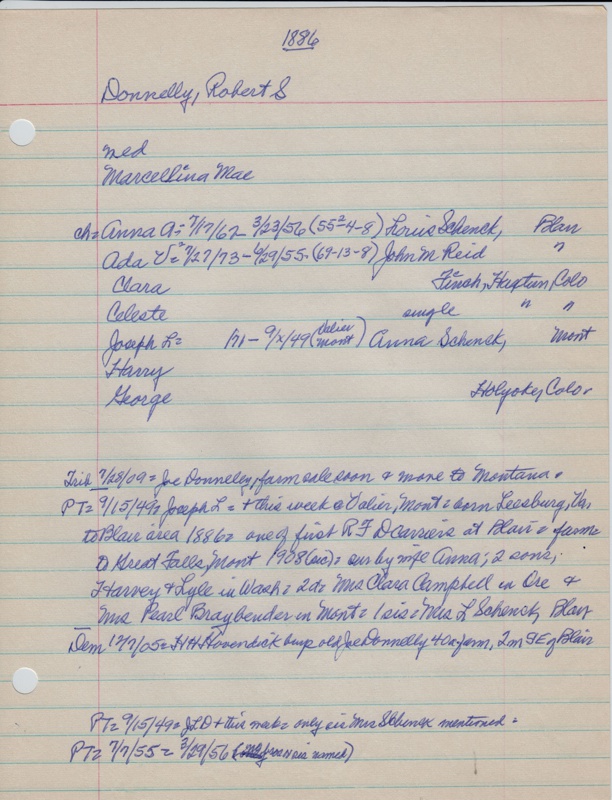 1886
Donnelly, Robert S
med
Marcellina Mae
ch= Anna A= 7/17/62 - 3/23/56 (55-4-8) Louis Schenck, Blair
Ada V= 7/27/73 - 6/29/55. (69-13-8) John M Reid "
Clara Finch, Haxtun, Colo
Celeste single " "
Joseph L= /71 - 9/x/49 (Valier Mont) Anna Schenck, Mont
Harry
George Holyoke, Colo.
Trib 7/28/09 = Joe Donnelly, farm sale soon & move to Montana.
PT= 9/15/49= Joseph L = + this week @ Valier, Mont = born Leesburg, Va,
to Blair area 1886= one of first RFD carriers at Blair = farm
to Great Falls, Mont 1908 (sic) = sur by wife Anna; 2 sons,
Harvey & Lyle in Wash = 2d= Mrs Clara Campbell in Ore &
Mrs Pearl Braybender in Mont = 1 sis = Mrs L Schenck, Blair
Dem 12/7/05 = HH Hovendick buys old Joe Donnelly farm, 2 m SE of Blair
PT= 9/15/49= JLD + this week = only sis Mrs Schenck mentioned =
PT= 7/7/55 = 3/29/56 ( sis named)